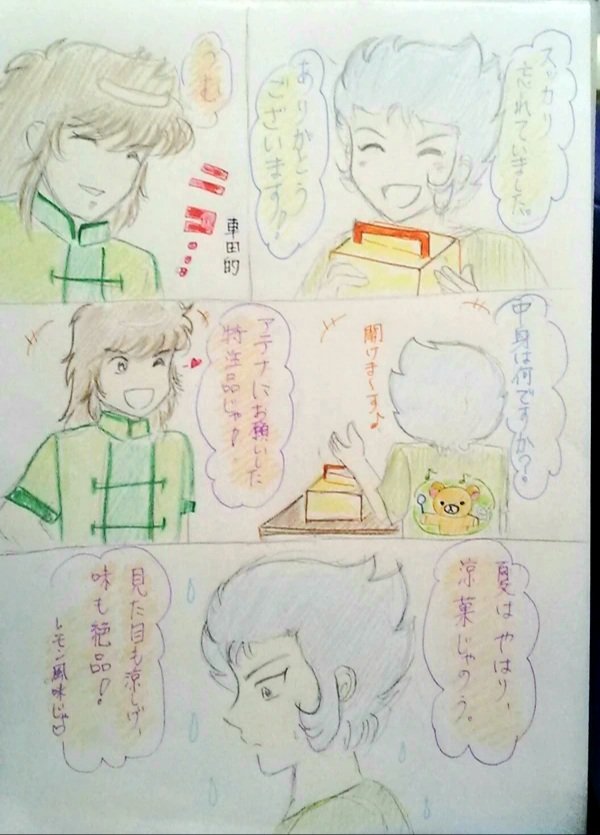 スッカリ
忘れていました。
ありがとう
ございます！
うむ
車田的
中身は何ですか？
開けま〜す♪
アテナにお願いした
特注品じゃ！
夏はやはり、
涼菓じゃのう。
見た目も涼しげ、
味も絶品！
レモン風味じゃ